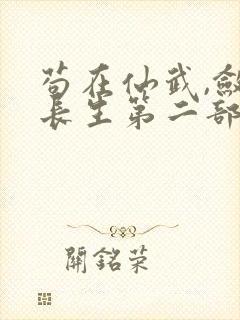 苟在仙武,斂
長生第二部
關銘荣